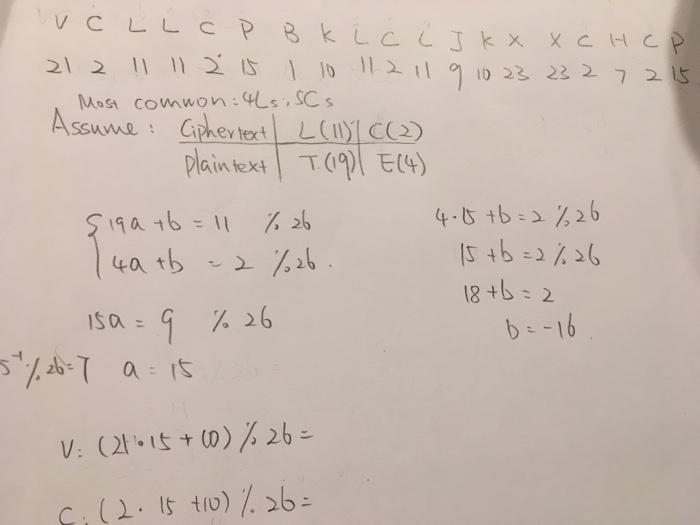 V C L L C P B K L C L J K X X C H C P
21 2 11 11 2 15 1 10 11 2 11 9 10 23 23 2 7 2 15
Most common: 4Ls, 5Cs
Assume: Ciphertext | L(11) | C(2)
Plaintext | T(19) | E(4)
{ 19a + b = 11 % 26
4a + b = 2 % 26.
15a = 9 % 26
5⁻¹ % 26 = 7 a = 15
4·15 + b = 2 % 26
15 + b = 2 % 26
18 + b = 2
b = -16
V: (21·15 + 10) % 26 =
C: (2·15 + 10) % 26 =